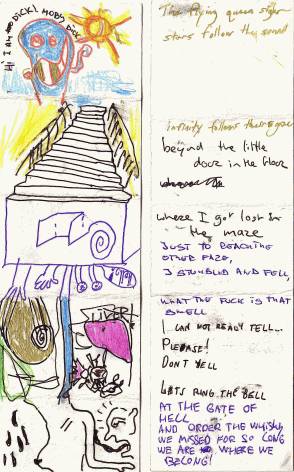 Hi I AM DICK! MOBY DICK!
The flying queen
stars follow the sound
infinity follow the
beyond the little
door in the floor
where I got lost in
the maze
JUST TO REACHING
OTHER
I STUMBLED AND FELL,
WHAT THE FUCK IS THAT
SMELL
I CAN NOT REALY TELL...
PLEASE!
DON'T YELL
LETS RING THE BELL
AT THE GATE OF
HELL
AND ORDER THE WHISKY
WE MISSED FOR SO LONG
WE ARE WHERE WE
BELONG!